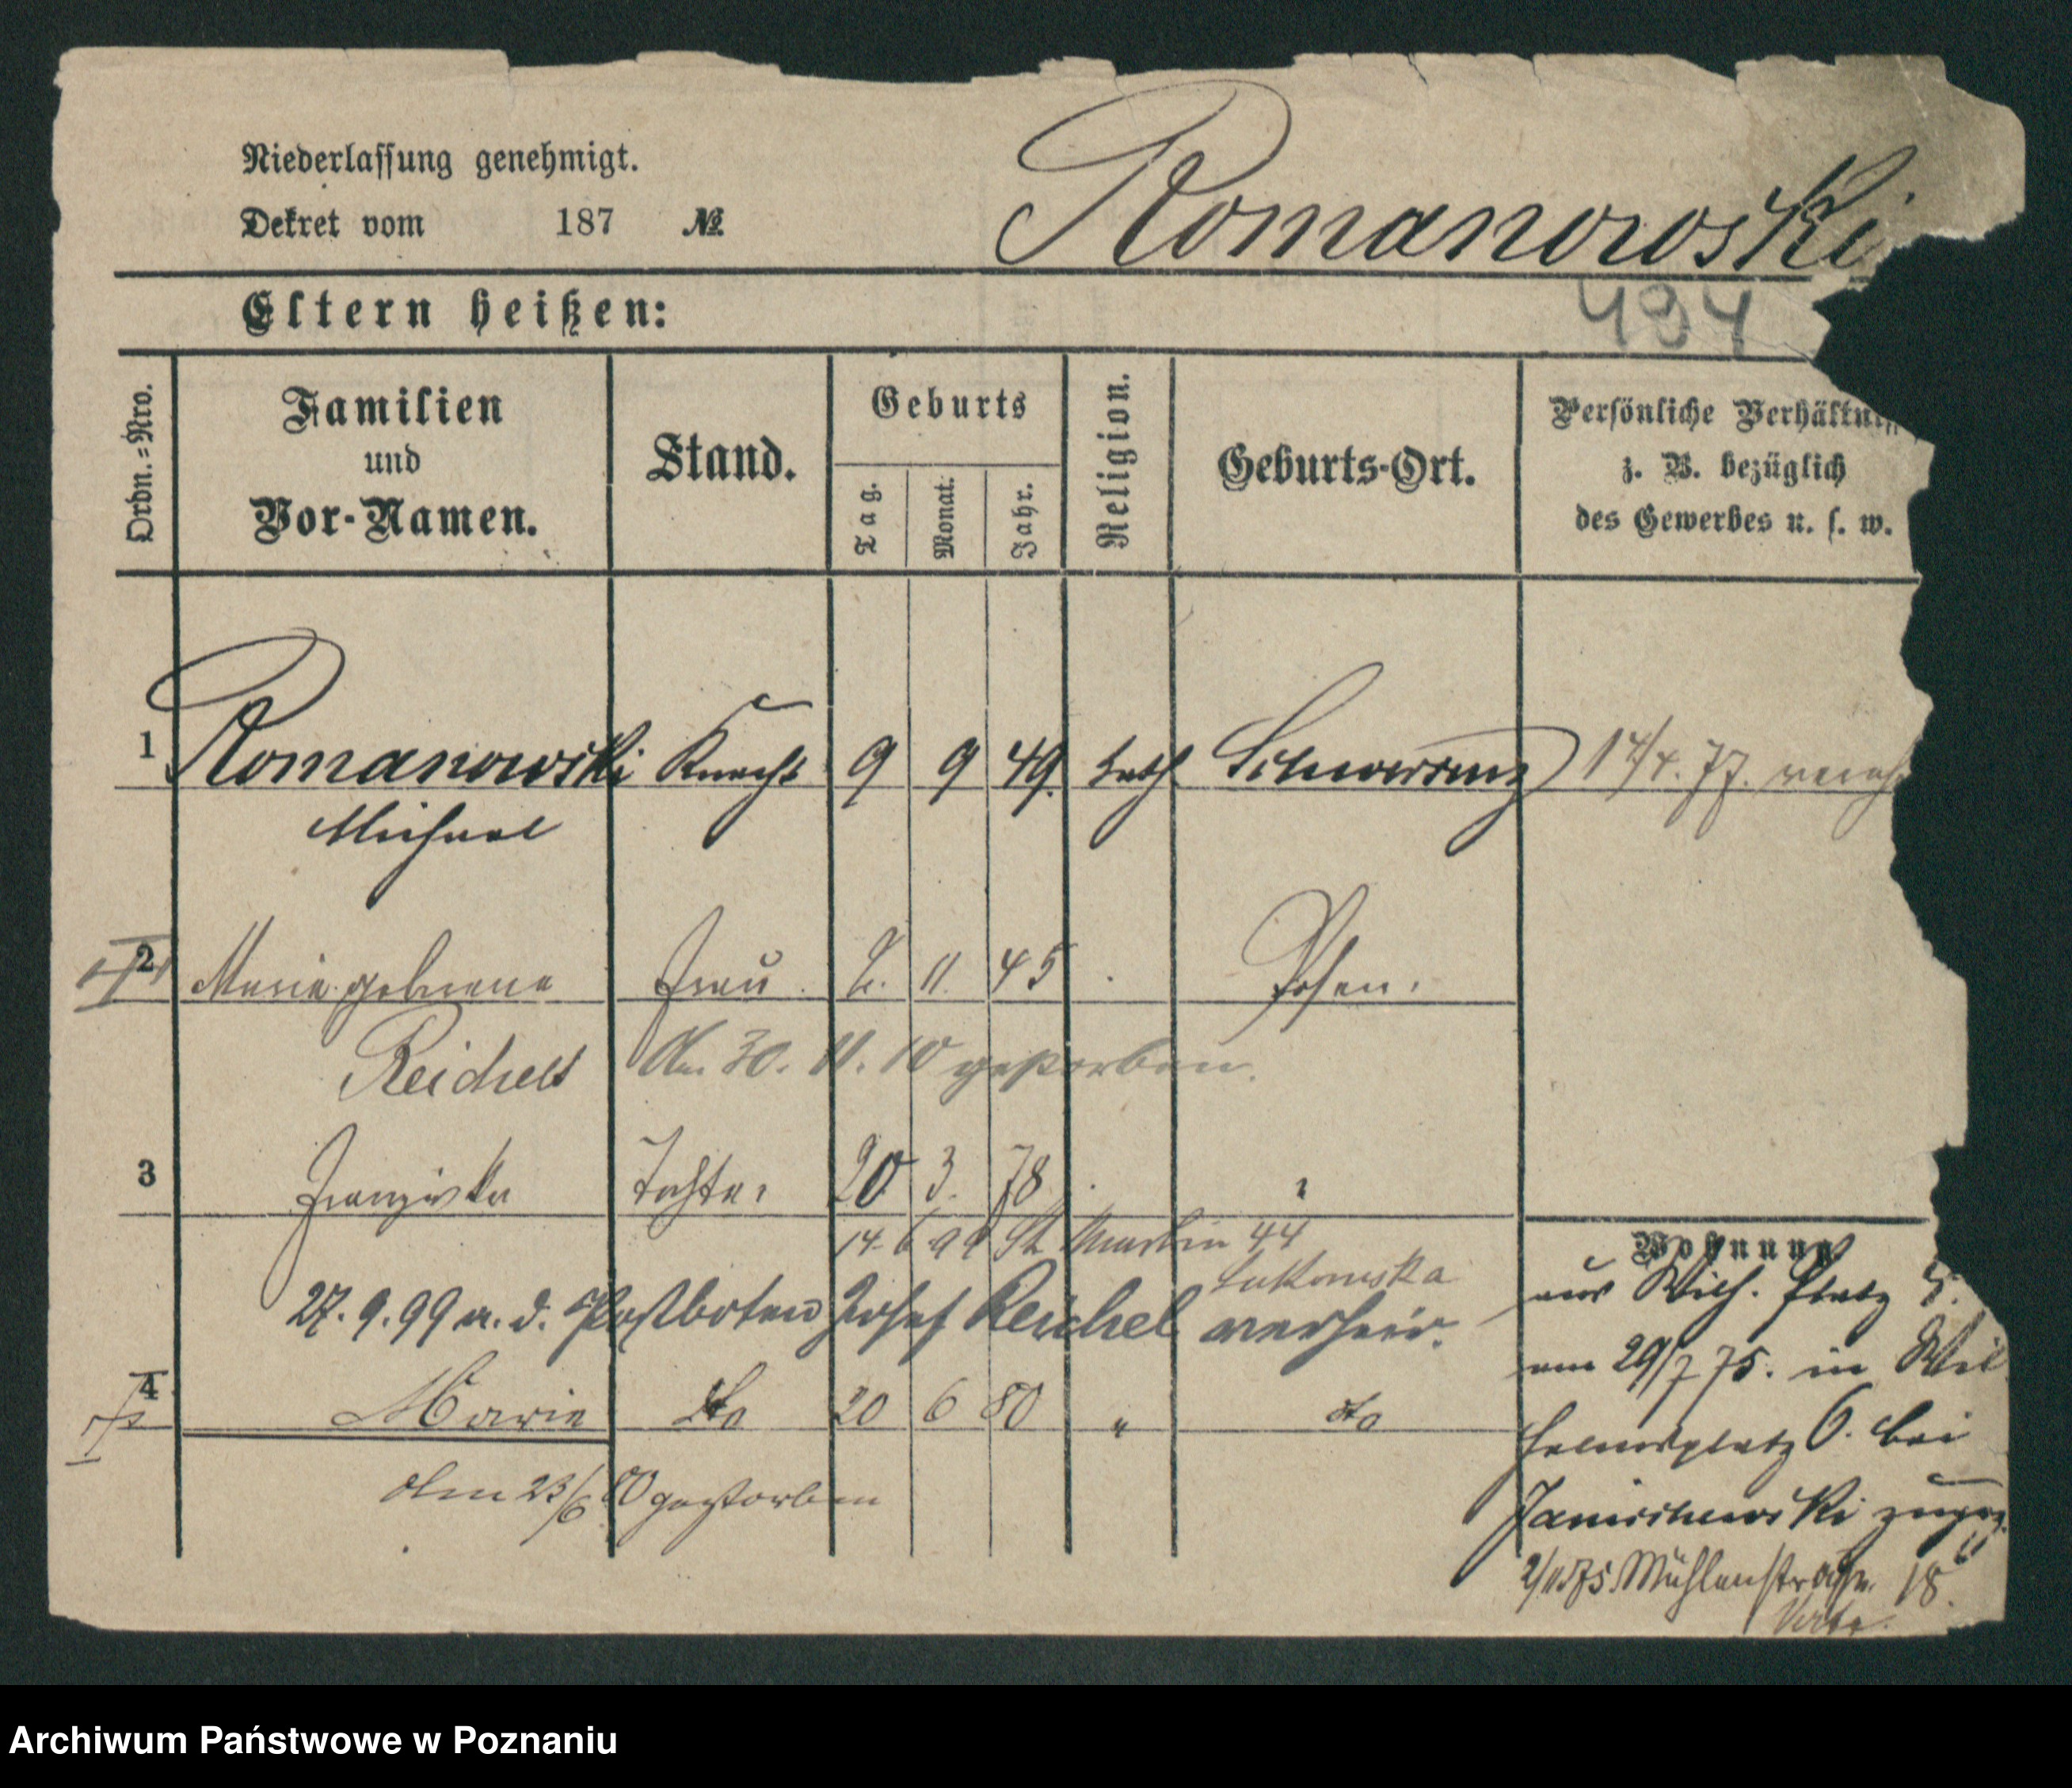 Niederlassung genehmigt.
Dekret vom 187 №
Romanowski
494
Eltern heißen:
Ordn.-Nro.
Familien
und
Vor-Namen.
Stand.
Geburts
Tag.
Monat.
Jahr.
Religion.
Geburts-Ort.
Persönliche Verhältn
z. B. bezüglich
des Gewerbes u. s. w.
1 Romanowski Knecht 9 9 49. kath Schwersenz 17/4. 77.
Michael
2 Marie geborene Frau. 2. 11. 45 Posen.
Reichelt
Am 30. 11. 10 gestorben.
3 Franziska Tochter 20 3. 78
14. 6 99 St. Martin 44
27. 9. 99 a. d. Postboten Josef Reichel verheir.
4 Marie dto 20 6 80 " dto
Am 23/6 80 gestorben
Wohnung
aus Wilh. Platz
am 29/7 75. in Wil
helmsplatz 6. bei
Janischewski zugez.
2/11 75. Mühlenstraße 18